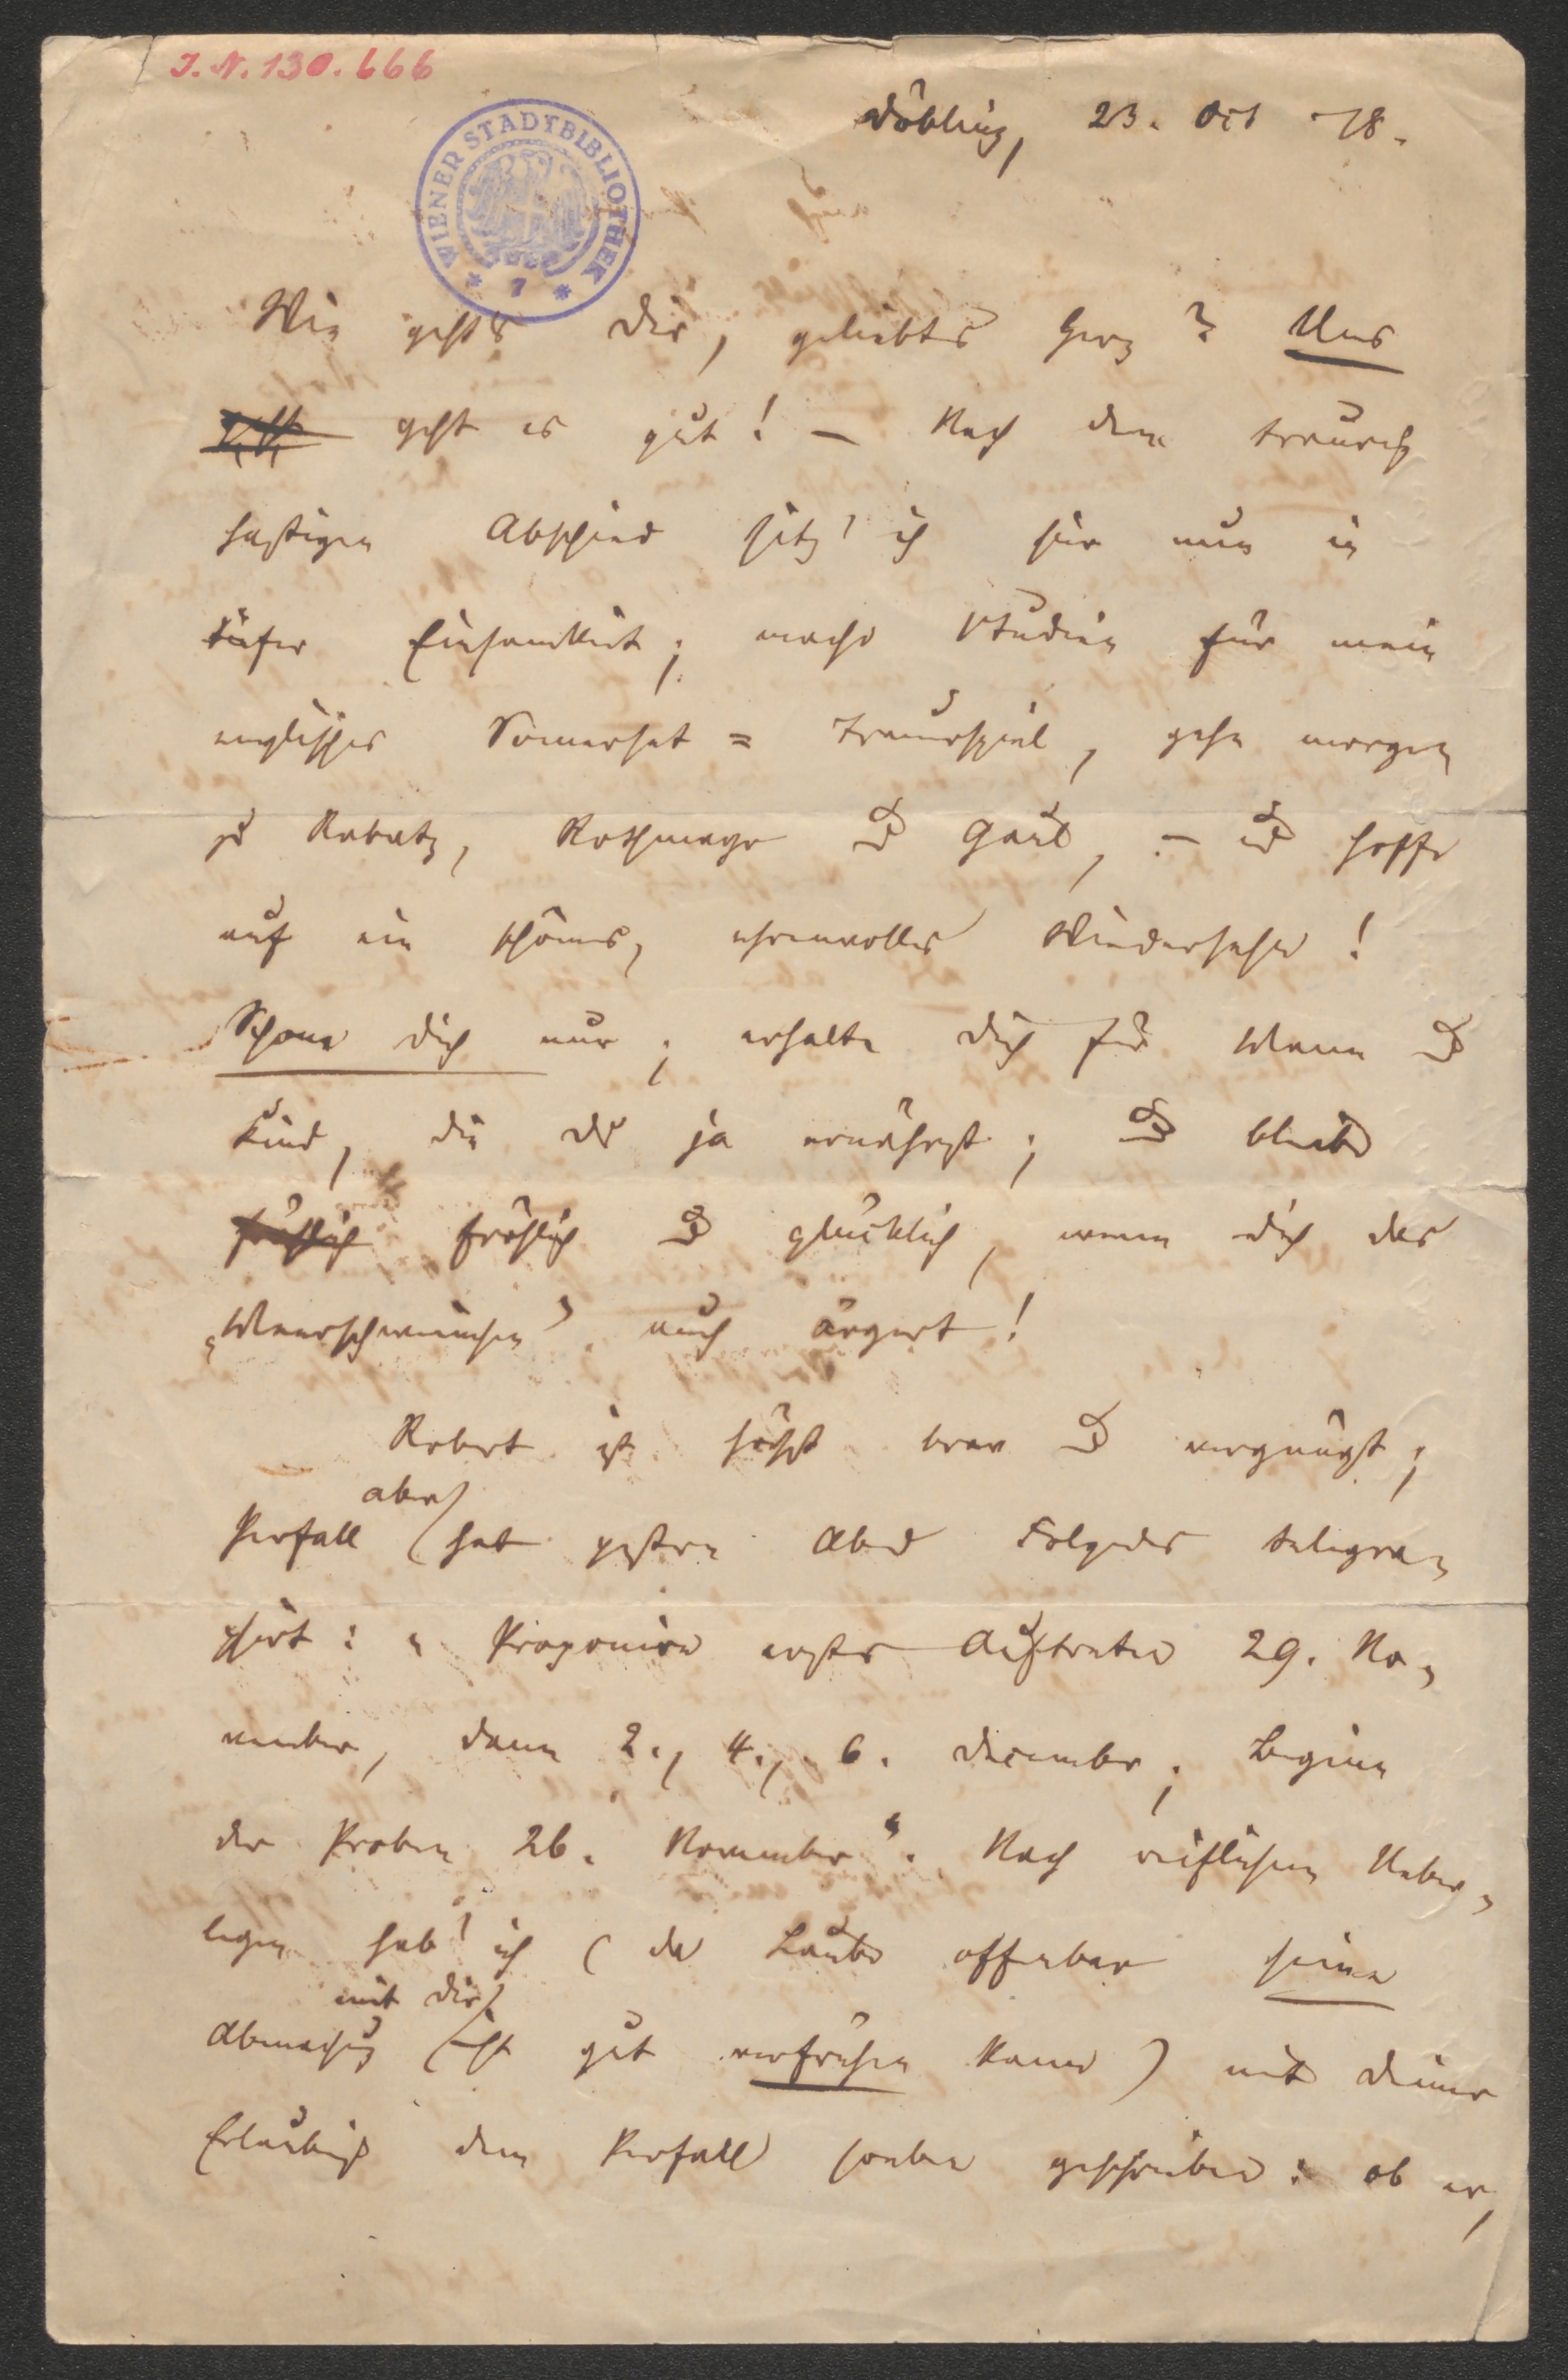 J. N. 130.666
WIENER STADTBIBLIOTHEK
* 7 *
Döbling, 23. Oct 78.
Wie geht's dir, geliebtes Herz? Uns
geht es gut! — Nach dem traurig
hastigen Abschied sitz' ich hier nun in
tiefer Einsamkeit; mache Studien für mein
englisches Somerset = Trauerspiel, gehe morgen
zu Kubatz, Rothmayr und — und hoffe
auf ein schönes, ehrenvolles Wiedersehn!
Schone dich nur; erhalte dich für Mann und
Kind, die du ja ernährst; und bleibe
fröhlich fröhlich und glücklich, wenn dich das
„Meerschweinchen" auch ärgert!
Robert ist höchst brav und vergnügt;
aber
Perfall hat gestern Abend Folgendes telegra-
phirt: „Proponire erstes Auftreten 29. No-
vember, dann 2., 4., 6. December; Beginn
der Proben 26. November". Nach reiflichem Ueber-
legen hab' ich (da Laube offenbar seine
mit dir
Abmachung gut verfrühen kann) mit deiner
Erlaubniß dem Perfall soeben geschrieben: ob er,